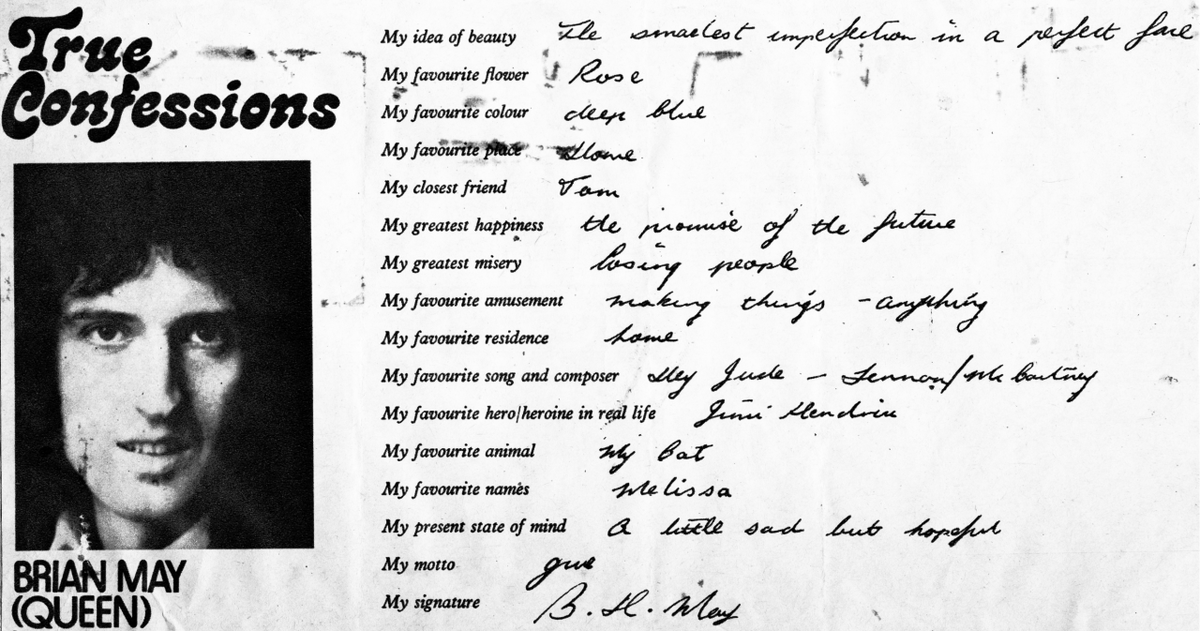 True
Confessions
BRIAN MAY
(QUEEN)
My idea of beauty The smallest imperfection in a perfect face
My favourite flower Rose
My favourite colour deep blue
My favourite place Home
My closest friend Tom
My greatest happiness the promise of the future
My greatest misery losing people
My favourite amusement making things - anything
My favourite residence home
My favourite song and composer Hey Jude - Lennon/McCartney
My favourite hero/heroine in real life Jimi Hendrix
My favourite animal My Cat
My favourite names Melissa
My present state of mind A little sad but hopeful
My motto give
My signature B. H. May